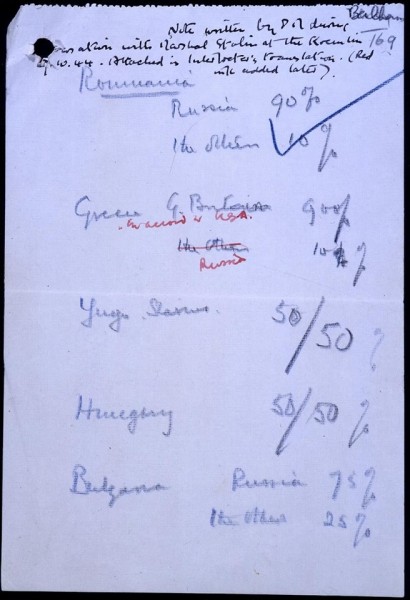 Balkans
169
Note written by P.M during
conversation with Marshal Stalin at the Kremlin
9.10.44. Attached is Interpreter's translation. (Red
ink added later).
Roumania
Russia 90%
The others 10%
Greece G. Britain 90%
in accord w USA.
the others 10%
Russia
Yugoslavia. 50/50 %
Hungary 50/50 %
Bulgaria Russia 75%
the others 25%